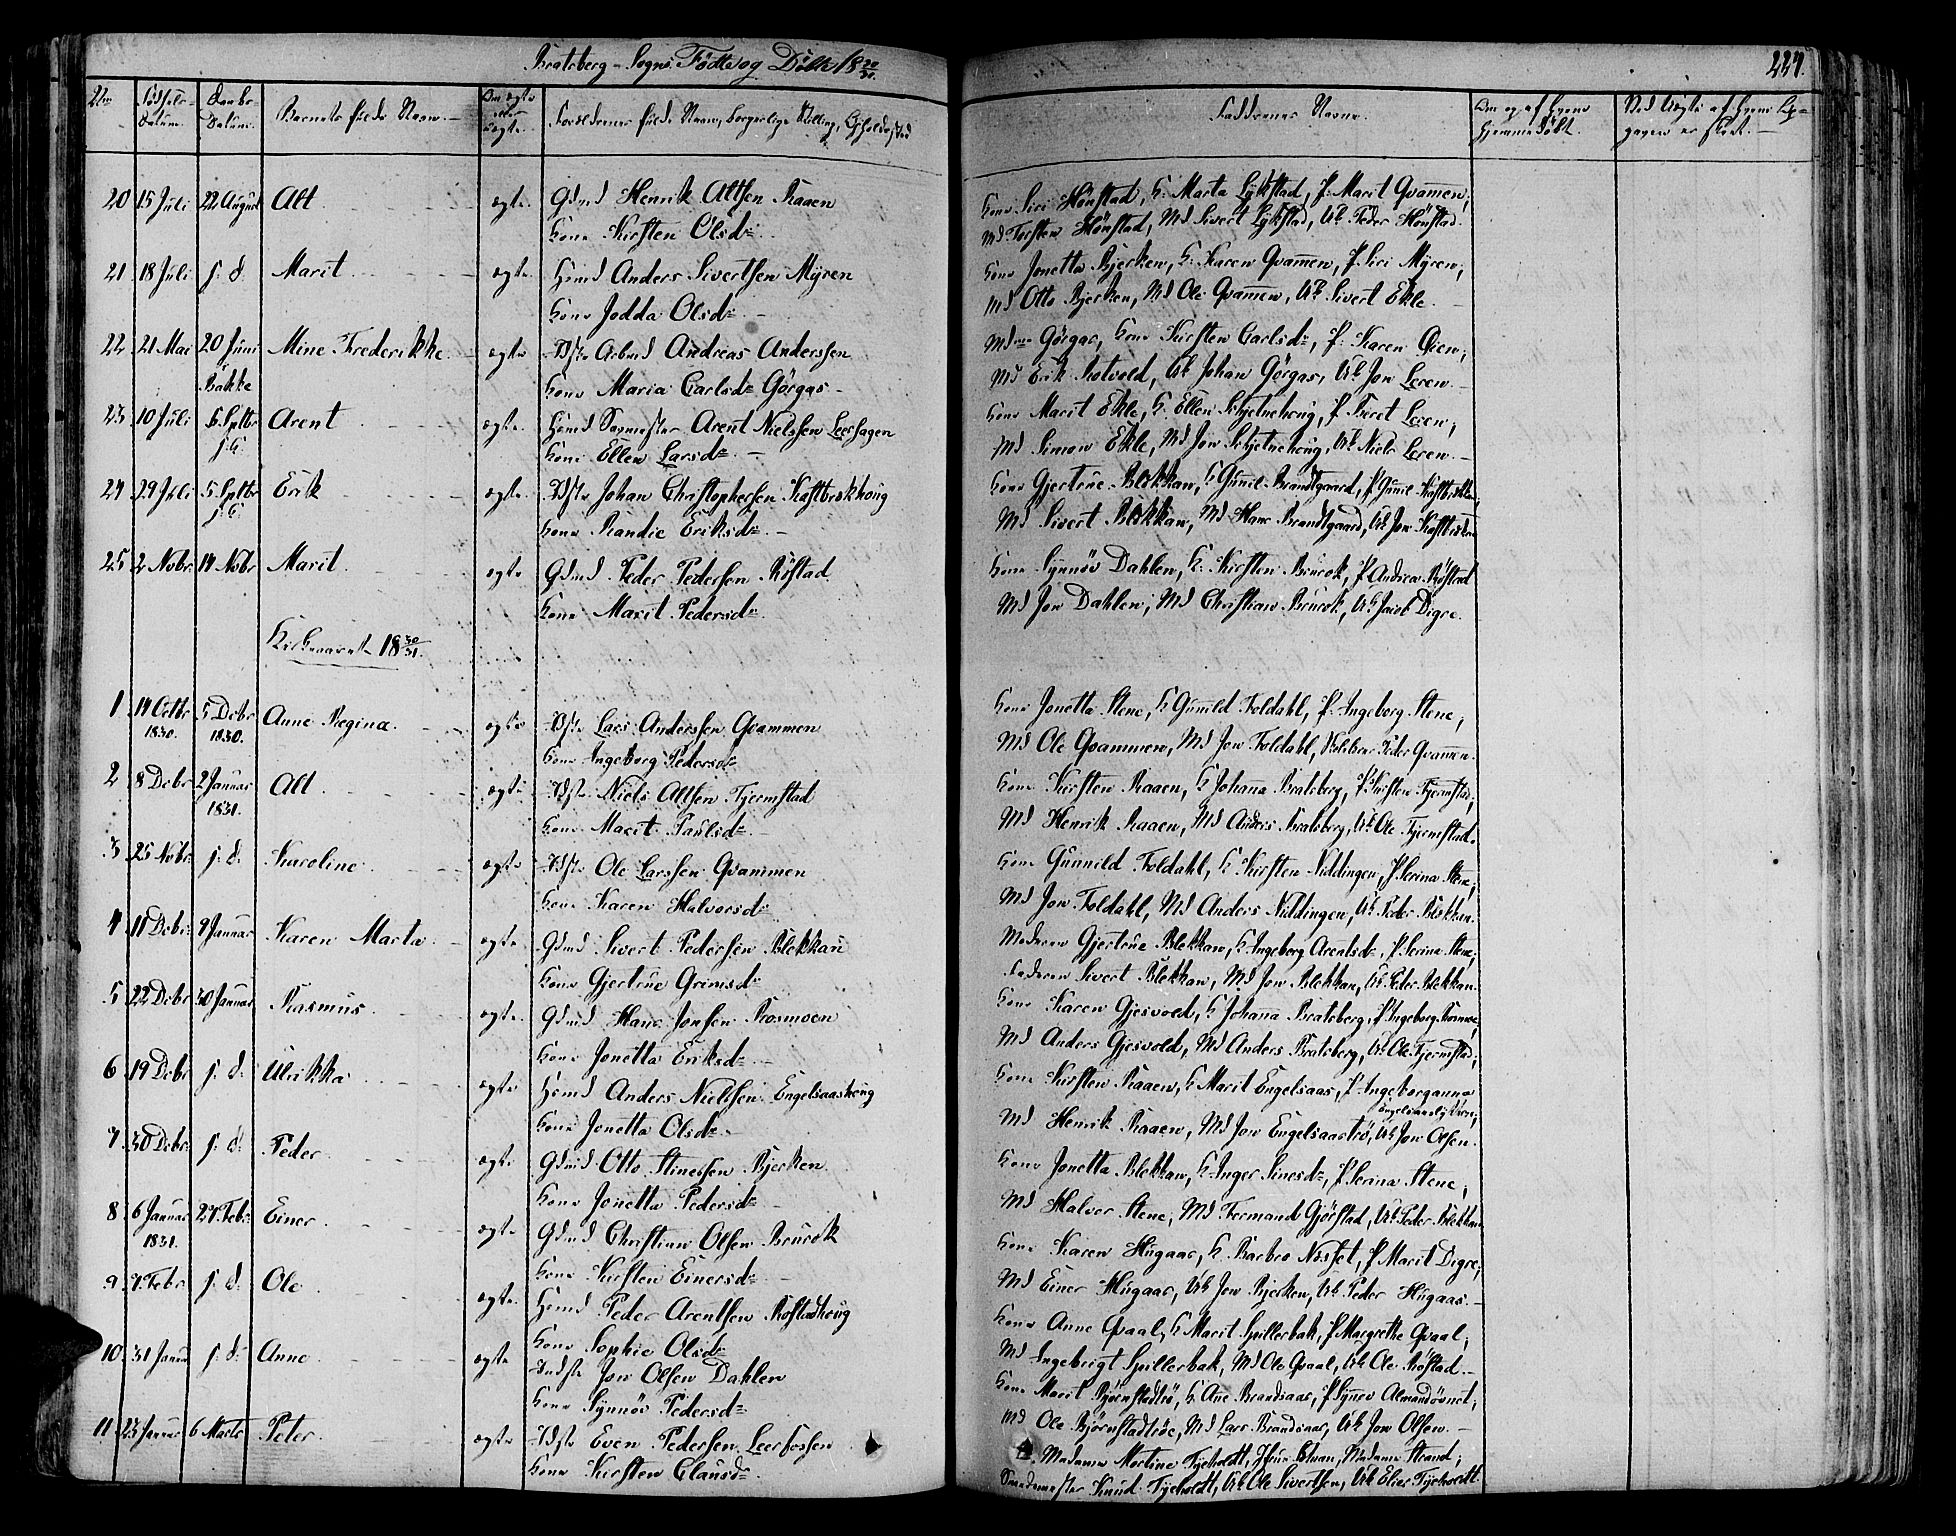 Bratsberg-Sogns Fødte og Døbte 18 30/31.
227.
Nr.
Fødsels-Datum.
Daabs-Datum.
Barnets fulde Navn.
Om ægte eller uægte.
Forældrenes fulde Navn, borgerlige Stilling, Opholdssted
Faddernes Navne.
Om og af hvem hjemmedøbt.
20 15 Juli 22 August Alt ægte Gdmd Henrik Altsen Raaen
Kone Kirsten Olsdr.
Kone Siri Hönstad, K. Marta Lykstad, P. Marit Qvammen,
Md Torsten Hönstad, Md Sivert Lykstad, Uk Peder Hönstad.
21 18 Juli s. d. Marit ægte Hsmd Anders Sivertsen Myren
Kone Jodda Olsdr.
Kone Jonetta Bjerken, K. Karen Qvammen, P. Siri Myren,
Md Otto Bjerken, Md Ole Qvammen, Uk Sivert Ekle.
22 21 Mai 20 Juni Bakke Mine Frederikke ægte Idste Arbmd Andreas Anderssen
Kone Maria Carlsdr. Görgas
Mdme Görgas, Kone Kirsten Carlsdr, P. Karen Gien,
Md Erik Rotvold, Uk Johan Görgas, Uk Jon Leren.
23 10 Juli 5 Sptbr Arent ægte Hsmd Arent Nielssen Leersagen
Kone Ellen Larsdr.
Kone Marit Ekle, K. Ellen Schjetnehoug, P. Beret Leren,
Md Simon Ekle, Md Jon Schjetnehoug, Uk Niels Leren.
24 29 Juli 5 Sptbr Erik ægte Idste Johan Christophersen Kastbrekhoug
Kone Randie Eriksdr.
Kone Gjertrue Blekkan, K Gunil Brandtgaard, P. Gunil Kastbrekken,
Md Sivert Blekkan, Md Hans Brandtgaard, Uk Jon Kastbrekken
25 2 Novbr. 14 Novbr Marit ægte Gdmd Peder Pedersen Röstad
Kone Marit Pedersdr
Kone Synnöv Dahlen, K. Kirsten Brurok, P. Andrea Röstad
Md Jon Dahlen, Md Christian Brurok, Uk Jacob Digre.
Kirkeaaret 18 30/31.
1 14 Octbr 1830. 5 Decbr 1830. Anne Regina ægte Idste Lars Anderssen Qvammen
Kone Ingeborg Pedersdr
Kone Jonetta Stene, K Gunild Foldahl, P. Ingeborg Stene,
Md Ole Qvammen, Md Jon Foldahl, Peder Qvammen.
2 8 Decbr 2 Januar 1831. Alt ægte Idste Niels Altsen Tjermstad
Kone Marit Paulsdr
Kone Kirsten Raaen, K Johana Bratsberg, P. Kirsten Tjermstad,
Md Henrik Raaen, Md Anders Bratsberg, Uk Ole Tjermstad.
3 25 Novbr. s. d. Karoline ægte Idste Ole Larssen Qvammen
Kone Karen Halvorsdr
Kone Gunnild Foldahl, K Kirsten Niddingen, P. Serina Stene,
Md Jon Foldahl, Md Anders Niddingen, Uk Peder Blekkan.
4 11 Decbr. 9 Januar Karen Marta ægte Gdmd Sivert Pedersen Blekkan
Kone Gjertrue Grimsdr
Moderen Gjertrue Blekkan, K Ingeborg Arentsdr, P. Serina Stene,
Faderen Sivert Blekkan, Md Jon Blekkan, Uk Peder Blekkan.
5 22 Decbr 30 Januar Rasmus ægte Gdmd Hans Jonsen Rosmoen
Kone Jonetta Eriksdr
Kone Karen Gjesvold, K Johana Bratsberg, P. Ingeborg Rosmoen,
Md Anders Gjesvold, Md Anders Bratsberg, Uk Ole Tjermstad,
6 19 Decbr s. d. Ulrikka ægte Hsmd Anders Nielssen Engelsaashoug
Kone Jonetta Olsdr.
Kone Kirsten Raaen, K Marit Engelsaas, P. Ingeborganna
Md Henrik Raaen, Md Jon Engelsaaströ, Uk Jon Olsen.
7 30 Decbr. s. d. Peder ægte Gdmd Otto Stinessen Bjerken
Kone Jonetta Pedersdr
Kone Jonetta Blekkan, K Inger Sinesdr, P. Serina Stene,
Md Halvor Stene, Md Formand Gjörstad, Uk Peder Blekkan
8 6 Januar 1831. 27 Febr. Einer ægte Gdmd Christian Olsen Brurok
Kone Kirsten Einersdr
Kone Karen Hugaas, K. Barbro Næsset, P. Marit Digre,
Md Einer Hugaas, Uk Jon Bjerken, Uk Peder Hugaas.
9 7 Febr s. d. Ole ægte Hsmd Peder Arentsen Rostadhoug
Kone Sophie Olsdr
Kone Anne Qvaal, K Marit Spillerbak, P. Margrethe Qvaal,
Md Ingebrigt Spillerbak, Md Ole Qvaal, Uk Ole Röstad.
10 31 Januar s. d. Anne ægte Indste Jon Olsen Dahlen
Kone Synnöv Pedersdr
Kone Marit Bjørnstadtrö, K Ane Brandsaas, P. Synnov Almandövnet,
Md Ole Bjørnstadtröe, Md Lars Brandsaas, Uk Jon Olsen.
11 23 Januar 6 Marts Peter ægte Idste Even Pedersen Leerfossen
Kone Kirsten Clausdr
Madame Martine Tyeholdt, Madame Strand,
Knud Tyeholdt, Uk Ole Sivertsen, Uk Elias Tyeholdt